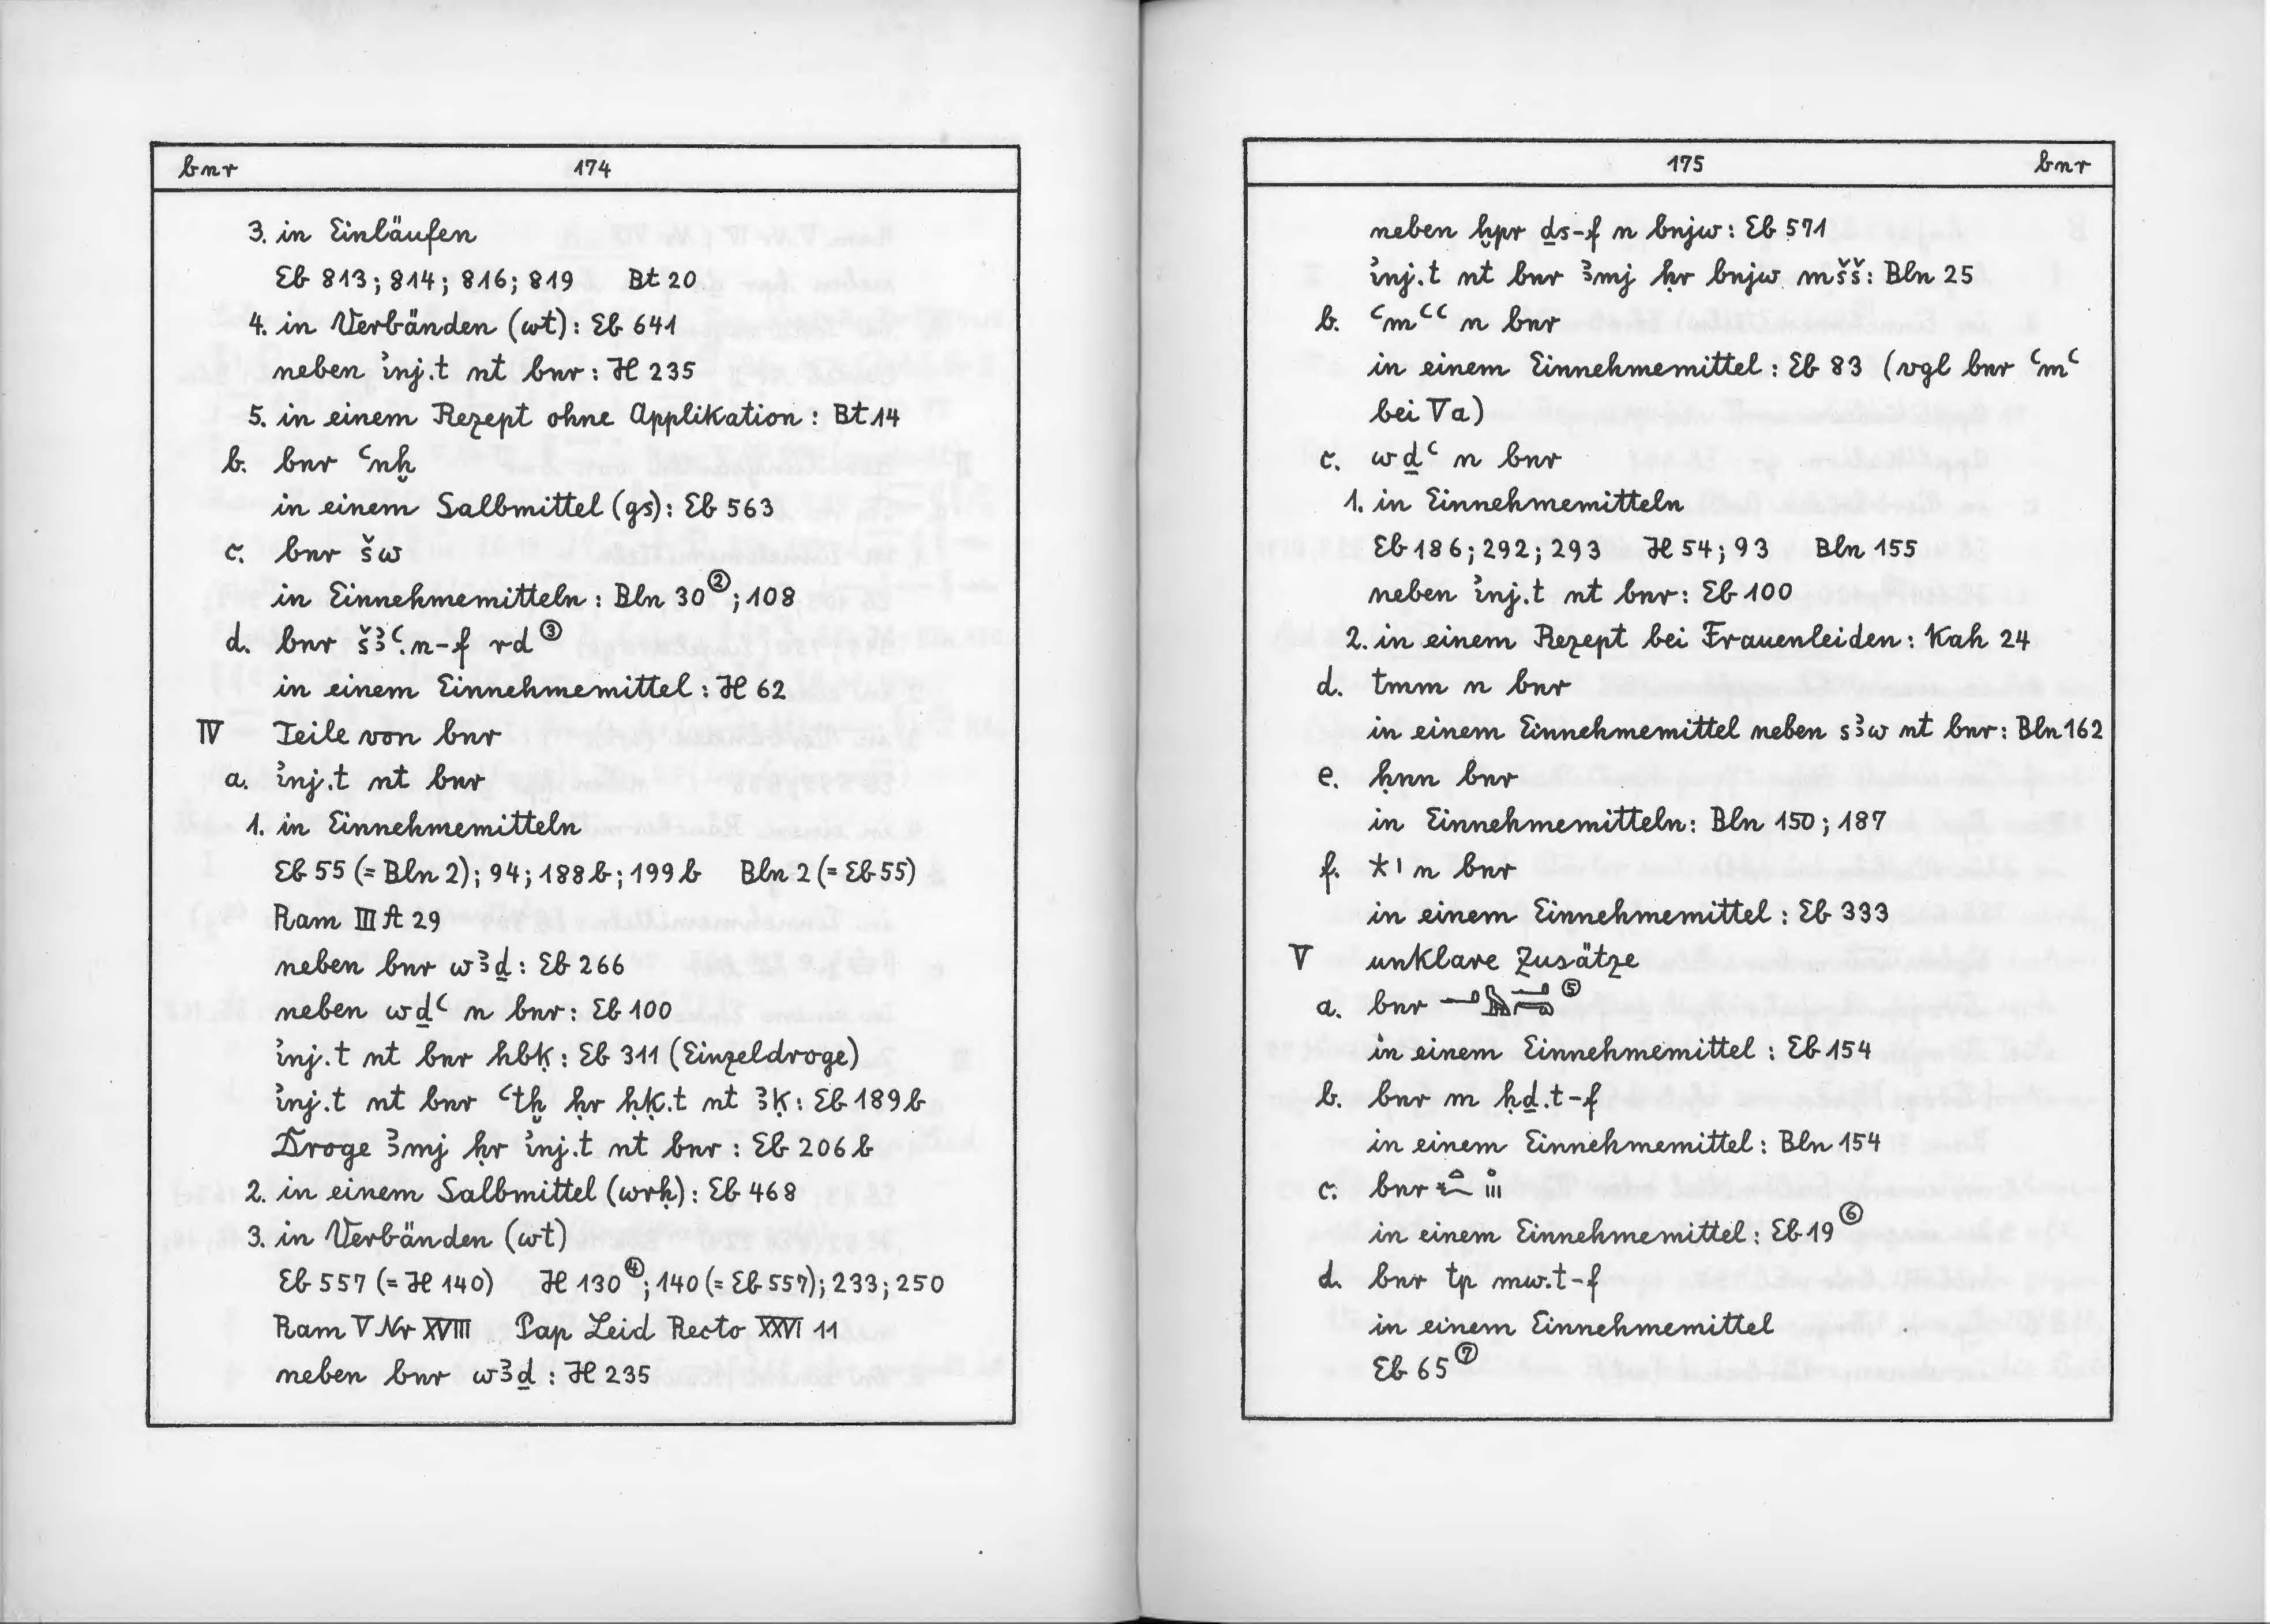 bnr 174
3. in Einläufen
Eb 813; 814; 816; 819 Bt 20
4. in Verbänden (wt): Eb 641
neben ỉnj.t nt bnr: H 235
5. in einem Rezept ohne Applikation: Bt 14
b. bnr ꜥnḫ
in einem Salbmittel (gs): Eb 563
c. bnr šw
in Einnehmemitteln: Bln 30②; 108
d. bnr šꜣꜥ.n-f rd③
in einem Einnehmemittel: H 62
IV Teile von bnr
a. ỉnj.t nt bnr
1. in Einnehmemitteln
Eb 55 (= Bln 2); 94; 188b; 199b Bln 2 (= Eb 55)
Ram III A 29
neben bnr wꜣḏ: Eb 266
neben wḏꜥ n bnr: Eb 100
ỉnj.t nt bnr hbḳ: Eb 311 (Einzeldroge)
ỉnj.t nt bnr ꜥtḫ ḥr ḥḳ.t nt ꜣḳ: Eb 189b
Droge ꜣmj ḥr ỉnj.t nt bnr: Eb 206b
2. in einem Salbmittel (wrḥ): Eb 468
3. in Verbänden (wt)
Eb 557 (= H 140) H 130④; 140 (= Eb 557); 233; 250
Ram V Nr XVIII Pap Leid Recto XXVI 11
neben bnr wꜣḏ: H 235
175 bnr
neben ḫpr ḏs-f n bnjw: Eb 571
ỉnj.t nt bnr ꜣmj ḥr bnjw mšš: Bln 25
b. ꜥmꜥꜥ n bnr
in einem Einnehmemittel: Eb 83 (vgl bnr ꜥmꜥ
bei Va)
c. wḏꜥ n bnr
1. in Einnehmemitteln
Eb 186; 292; 293 H 54; 93 Bln 155
neben ỉnj.t nt bnr: Eb 100
2. in einem Rezept bei Frauenleiden: Kah 24
d. tmm n bnr
in einem Einnehmemittel neben sꜣw nt bnr: Bln 162
e. ḥnn bnr
in Einnehmemitteln: Bln 150; 187
f. 𓇼𓏤 n bnr
in einem Einnehmemittel: Eb 333
V unklare Zusätze
a. bnr ⑤
in einem Einnehmemittel: Eb 154
b. bnr m ḥḏ.t-f
in einem Einnehmemittel: Bln 154
c. bnr
in einem Einnehmemittel: Eb 19⑥
d. bnr tp mw.t-f
in einem Einnehmemittel
Eb 65⑦